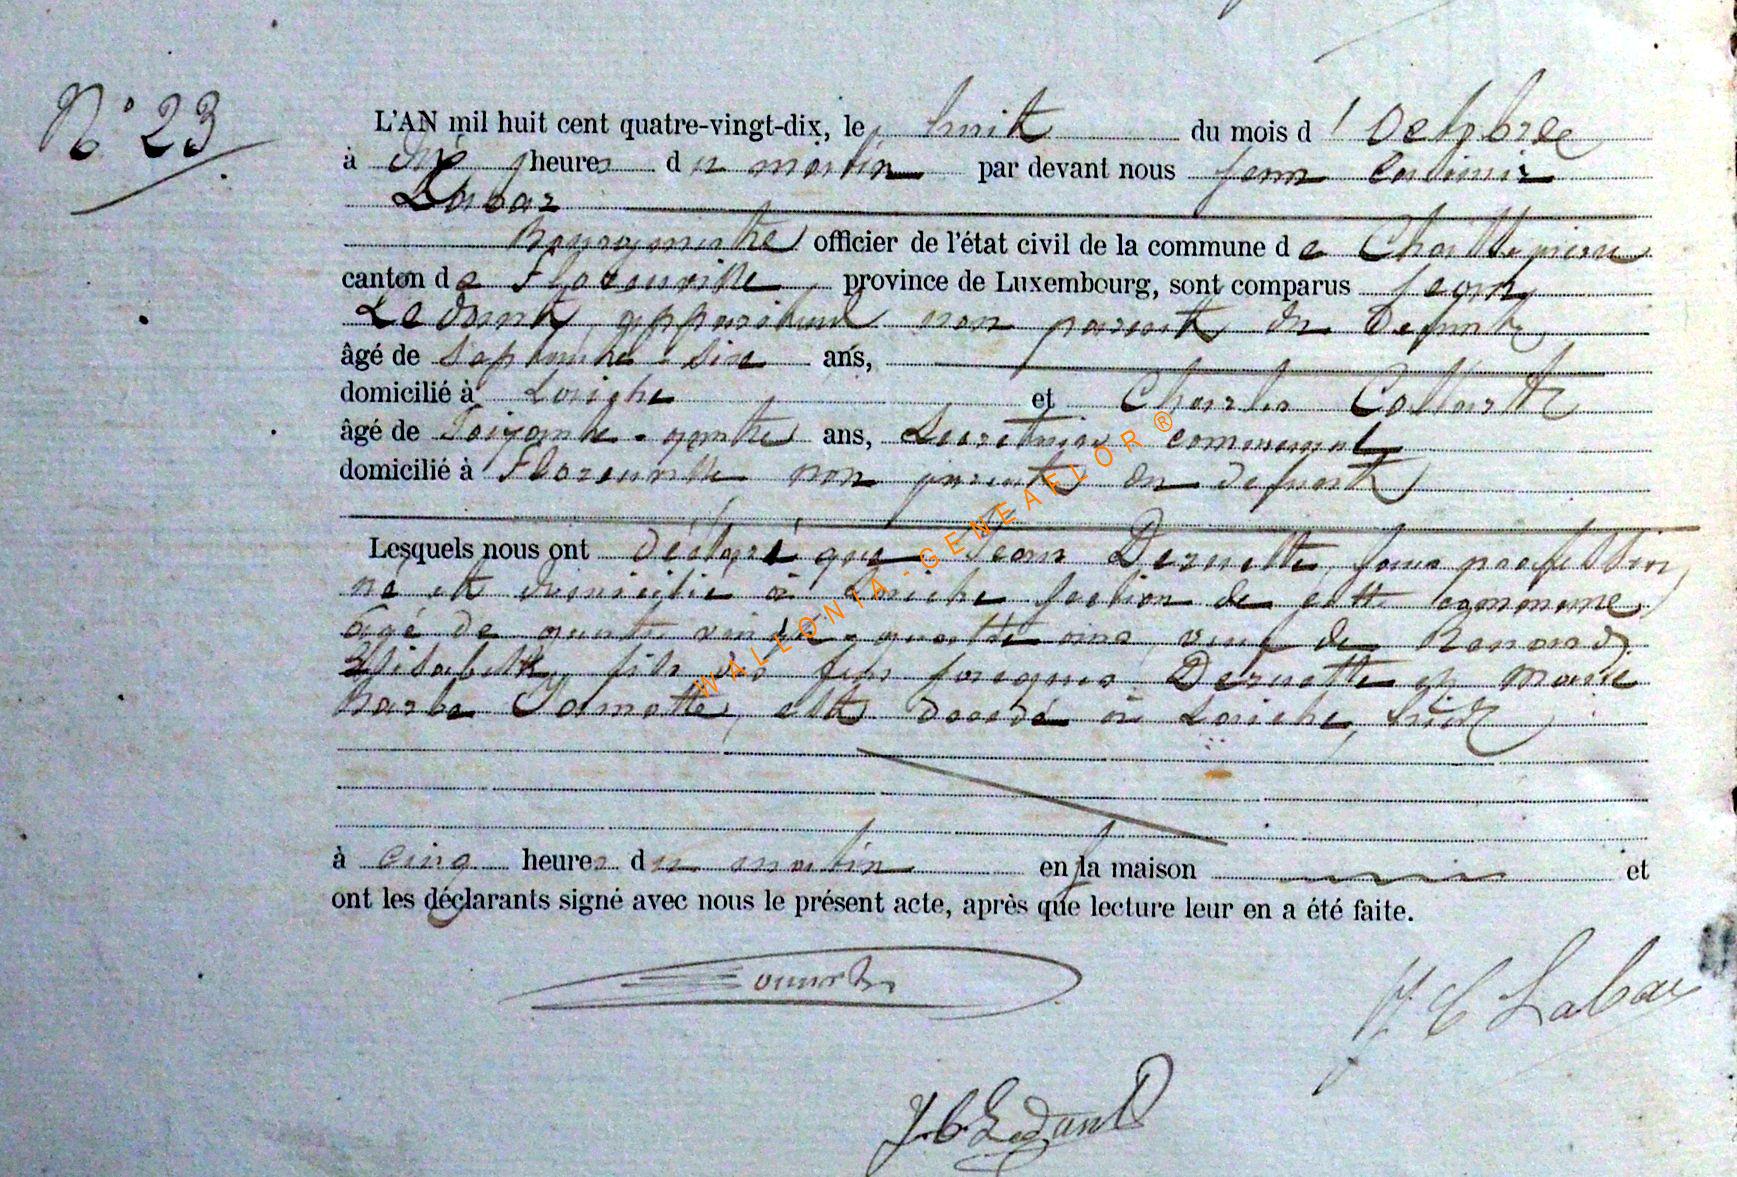 N° 23
L'AN mil huit cent quatre-vingt-dix, le huit du mois d'Octobre
à dix heures du matin par devant nous Jean Casimir
Labar
Bourgmestre officier de l'état civil de la commune de Chassepierre
canton de Florenville province de Luxembourg, sont comparus Jean
Ledant, appariteur non parent du defunt
âgé de Septante-six ans,
domicilié à Laiche et Charles Collart
âgé de ans, Secrétaire communal
domicilié à Florenville non parent du defunt
Lesquels nous ont déclaré que Jean Dernette, sans profession
né et domicilié à Laiche section de cette commune,
âgé de quatre vingt-quatre ans, veuf de Renard
Elisabeth fils des feus Jacques Dernette et Marie
Barbe Jamotte, est décédé à Laiche, hier
à cinq heures du matin en sa maison et
ont les déclarants signé avec nous le présent acte, après que lecture leur en a été faite.
J C Labar
J. C. Ledant
WALLONIA-GENEAFLOR®